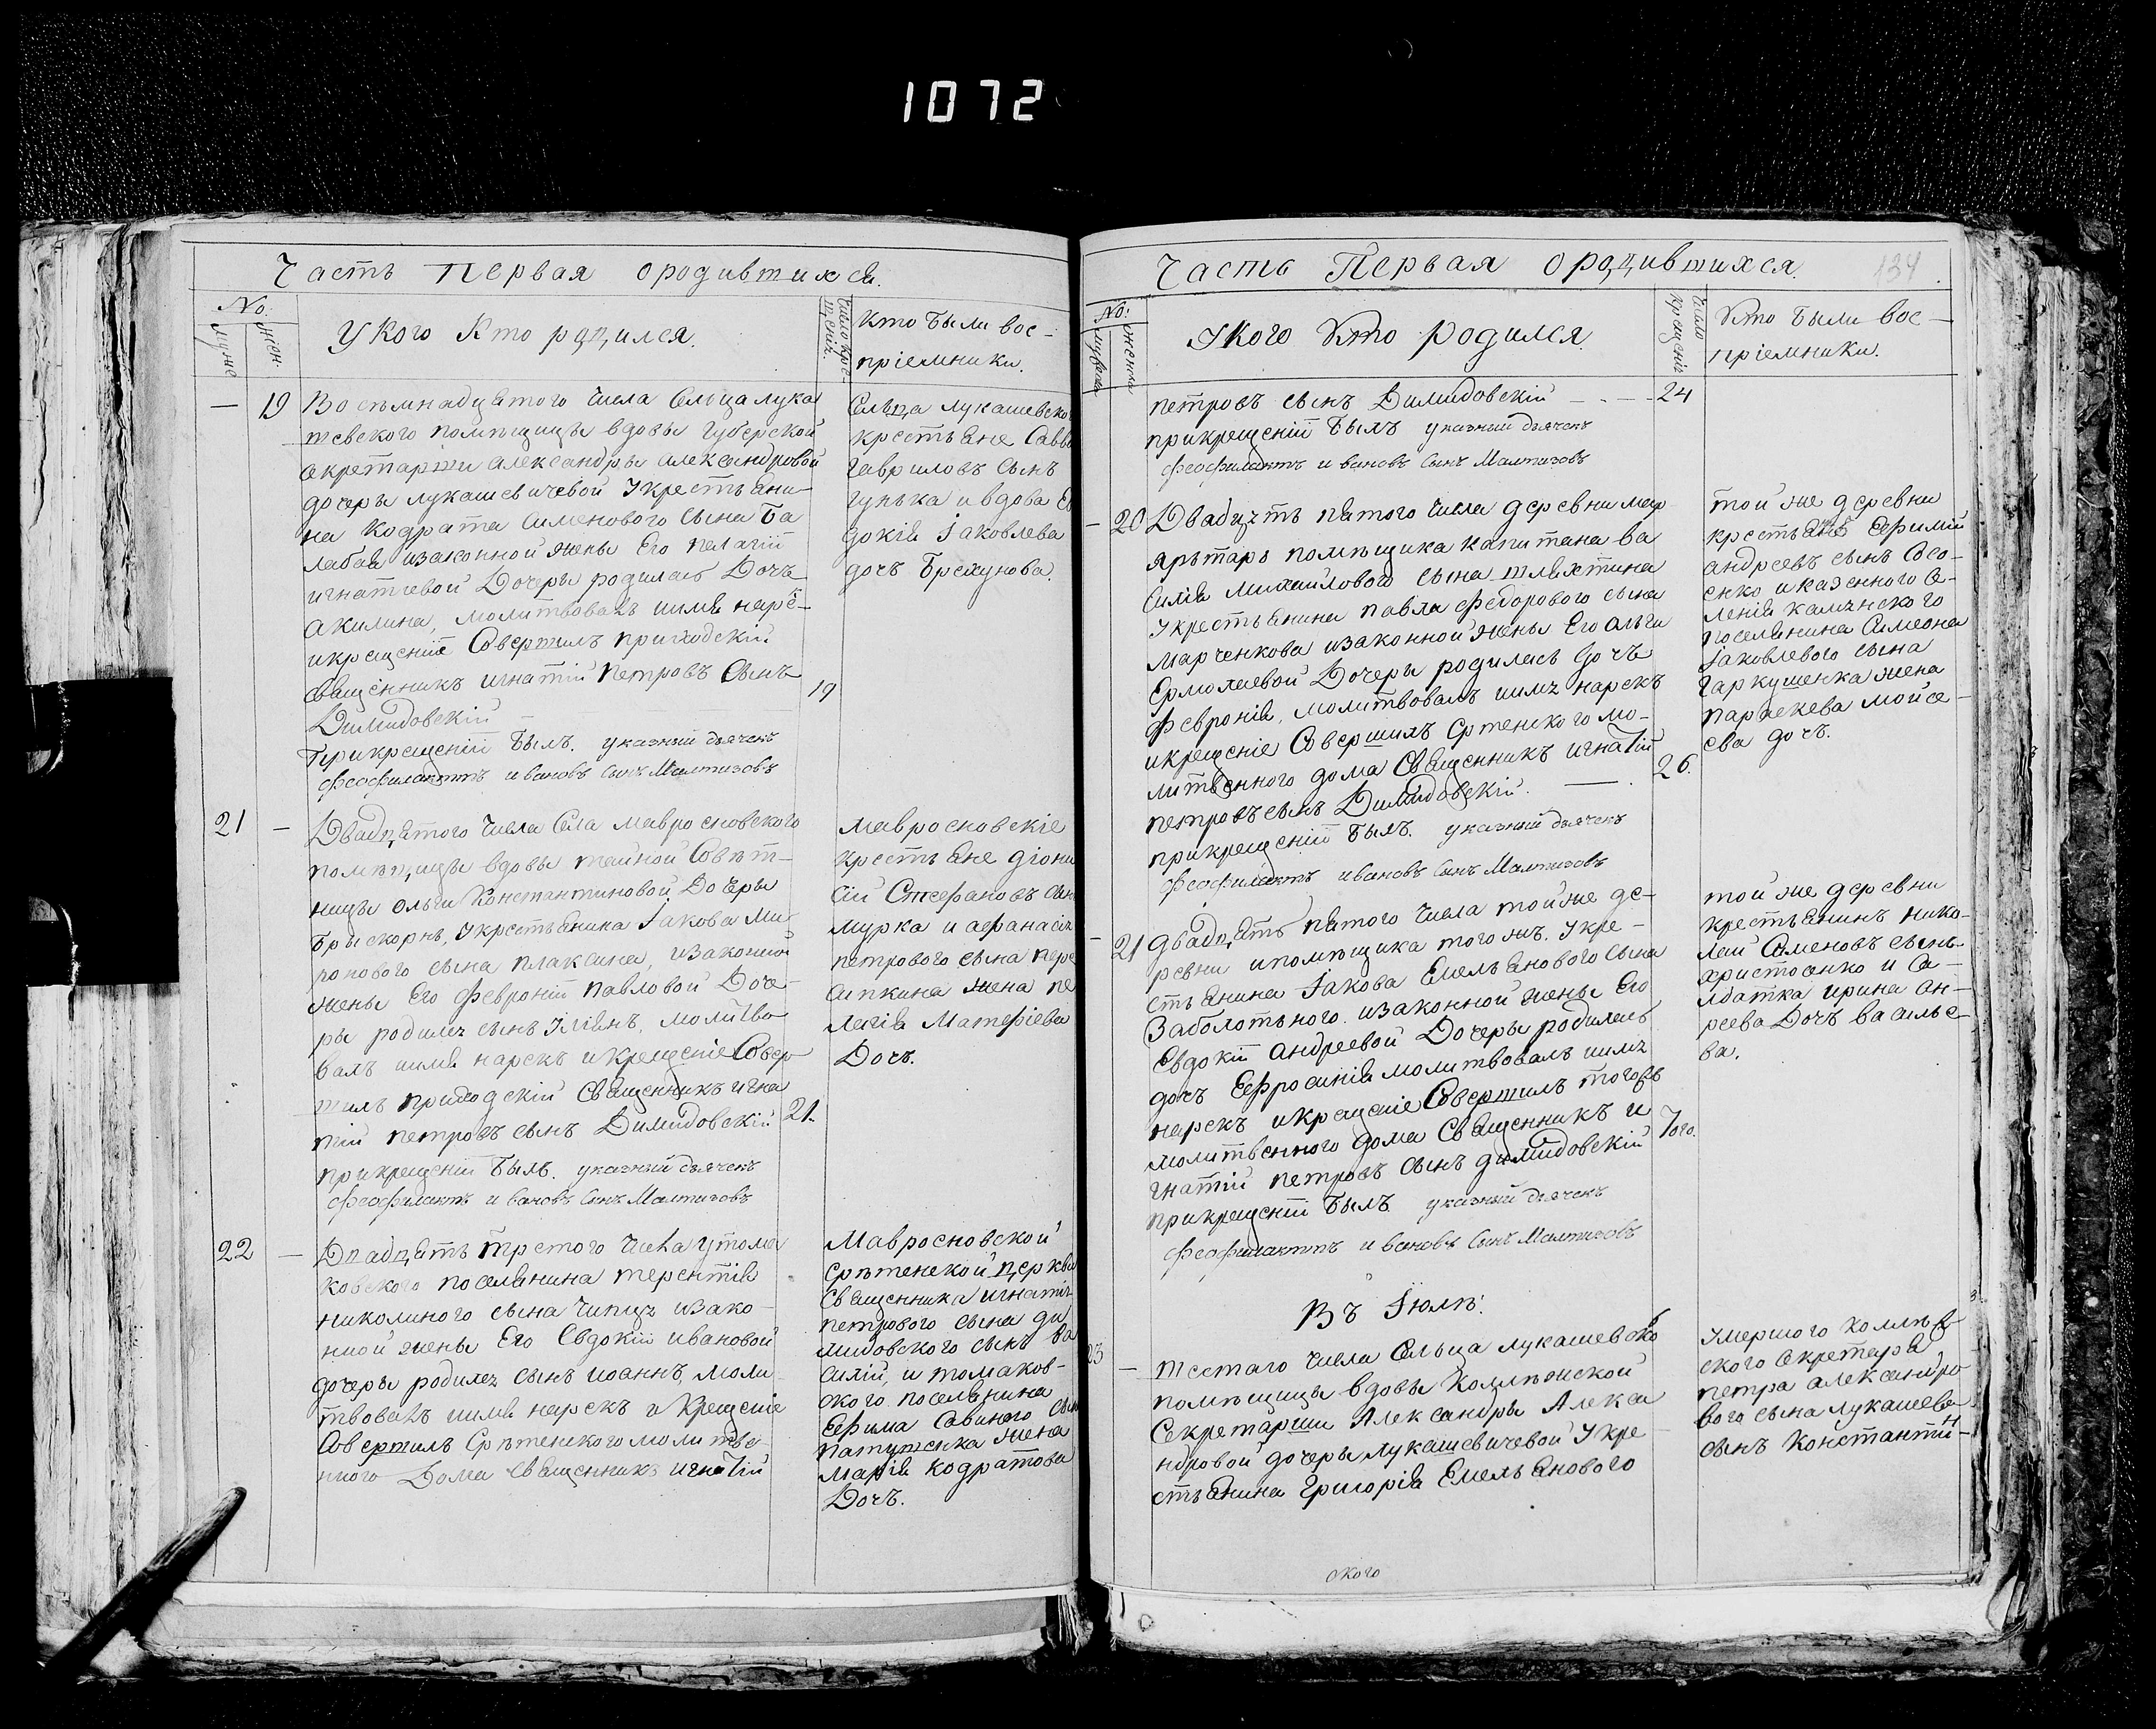 1072
Часть Первая ородившихся.
No.
муже
жен.
Укого Кто родился.
Число кре-
щенія.
Кто были вос-
пріемники.
— 19 Восемнадцятого числа Сельца лука
шевского помѣщицы вдовы губерской
секретарши александры александровой
дочеры лукашевичевой Укрестьяни-
на Кодрата Сименового сына Ба
лабая изаконной жены Его пелагіи
игнатіевой Дочеры родилась Дочъ
акилина, молитвовалъ имя наре-
икрещеніе Совершилъ приходскій
священникъ игнатій Петровъ Сынъ
Димидовскій
19
Прикрещеніи былъ. указный дьячекъ
Феофилактъ ивановъ сынъ Малтизовъ
Сельца лукашевско
крестьяне Савва
гавриловъ сынъ
гунька ивдова Ев
докія Іаковлева
дочъ Брехунова.
21 — Двадцятого числа Села мавросновского
помѣщицы вдовы тайной Совѣт-
ницы ольги Константиновой Дочеры
Брыскорнь, Укрестьянина Іакова Ми
ронового сына плаксина, изаконной
жены Его Февроніи Павловой Доче-
ры родился сынъ Іліянъ, молитво
валъ имя нарекъ икрещеніе Совер
шилъ приходскій Священникъ игна
тій петровъ сынъ Димидовскій 21.
прикрещеніи былъ. указный дьячекъ
Феофилактъ ивановъ сынъ Малтизовъ
мавросновскіе
крестьяне діони
сій Стефановъ сын
мурка и афанасія
петрового сына пере
сипкина жена пе
лагія Матфіева
Дочъ.
22 — Двадцять третого числа утома
ковского поселянина терентія
николиного сына чипця изако-
нной жены Его Евдокіи ивановой
дочеры родился сынъ иоаннъ, моли
твовалъ имя нарекъ и Крещеніе
Совершилъ Срѣтенского молитве-
нного Дома священникъ игнатій
Мавросновской
Срѣтенской церкви
Священника игнатія
петрового сына ди
мидовского сынъ ва
силій, и томаков-
ского поселянина
Ефима Савиного сын
патушенка жена
марія кодратова
Дочъ.
Часть Первая ородившихся. 134.
No:
Укого Кто родился
Число
крещенія
Кто были вос-
пріемники.
петровъ сынъ Димидовскій — 24
прикрещеніи былъ указный дьячекъ
Феофилактъ ивановъ сынъ Малтизовъ
— 20 Двадцять пятого числа деревни мар
ярьтарь помѣщика капитана ва
силія михайлового сына шляхтина
Укрестьянина павла федорового сына
марченкова изаконной жены Его ольги
Ермолаевой Дочеры родилась дочъ
Февронія, молитвовалъ имя нарекъ
икрещеніе Совершилъ Сртенского мо-
литвенного дома Священникъ игнатій
петровъ сынъ Димидовскій. — 26.
прикрещеніи былъ. указный дьячекъ
Феофилактъ ивановъ сынъ Малтизовъ
той же деревни
крестьянъ Ефимій
андреевъ сынъ Сосо-
енко иказенного се-
ленія каменского
поселянина Симеона
Іаковлевого сына
гаркушенка жена
параскева мойсе-
ева дочъ.
— 21 двадцять пятого числа той же де-
ревни ипомѣщика того жъ. Укре-
стьянина Іакова Емельянового сына
Заболотьного изаконной жены Его
Евдокіи андреевой Дочеры родилась
дочъ Ефросинія молитвовалъ имя
нарекъ икрещеніе Совершилъ тогожъ
молитвенного дома Священникъ и
гнатій петровъ сынъ димидовскій Того.
прикрещеніи былъ указный дьячекъ
Феофилактъ ивановъ сынъ Малтизовъ
той же деревни
крестьянинъ нико-
лай Сименовъ сынъ
христоенко и Со-
лдатка ирина ан-
реева Дочъ василье
ва.
Въ Іюлѣ:
23 — шестаго числа Сельца лукашевско
помѣщицы вдовы Коллѣжской
Секретарши Александры Алекса
ндровой дочеры лукашевичевой Укре
стьянина Григорія Емельянового
умершого коллѣж-
ского Секретаря
петра александро
вого сына лукашеве
сынъ Константи-
ского